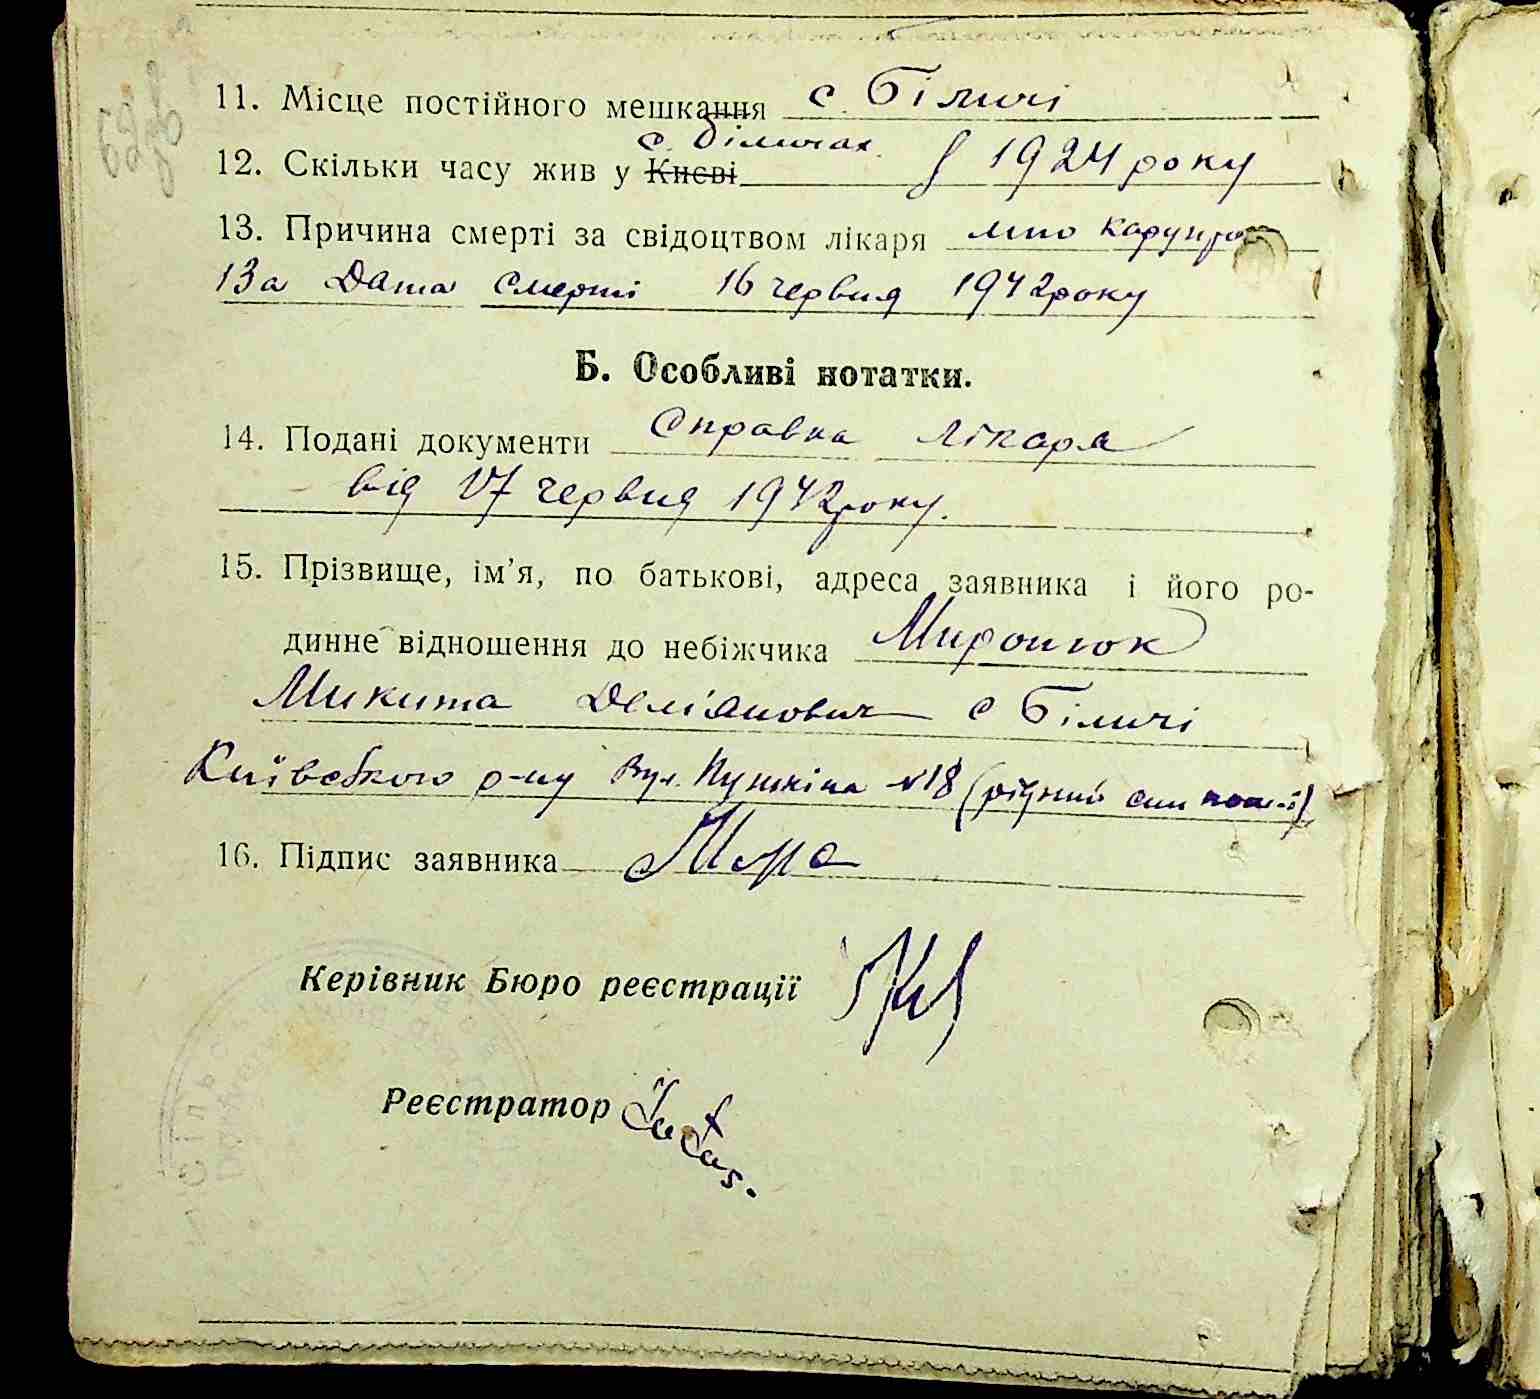 11. Місце постійного мешкання с. Біличі
с. Біличах.
12. Скільки часу жив у Києві з 1924 року
13. Причина смерті за свідоцтвом лікаря
13а Дата смерті 16 червня 1942 року
Б. Особливі нотатки.
14. Подані документи Справка лікаря
від 17 червня 1942 року.
15. Прізвище, ім’я, по батькові, адреса заявника і його ро-
динне відношення до небіжчика Миронюк
Микита Деміанович с Біличі
Київського р-ну Вул. Пушкіна №18 (рідний син
16. Підпис заявника
Керівник Бюро реєстрації
Реєстратор